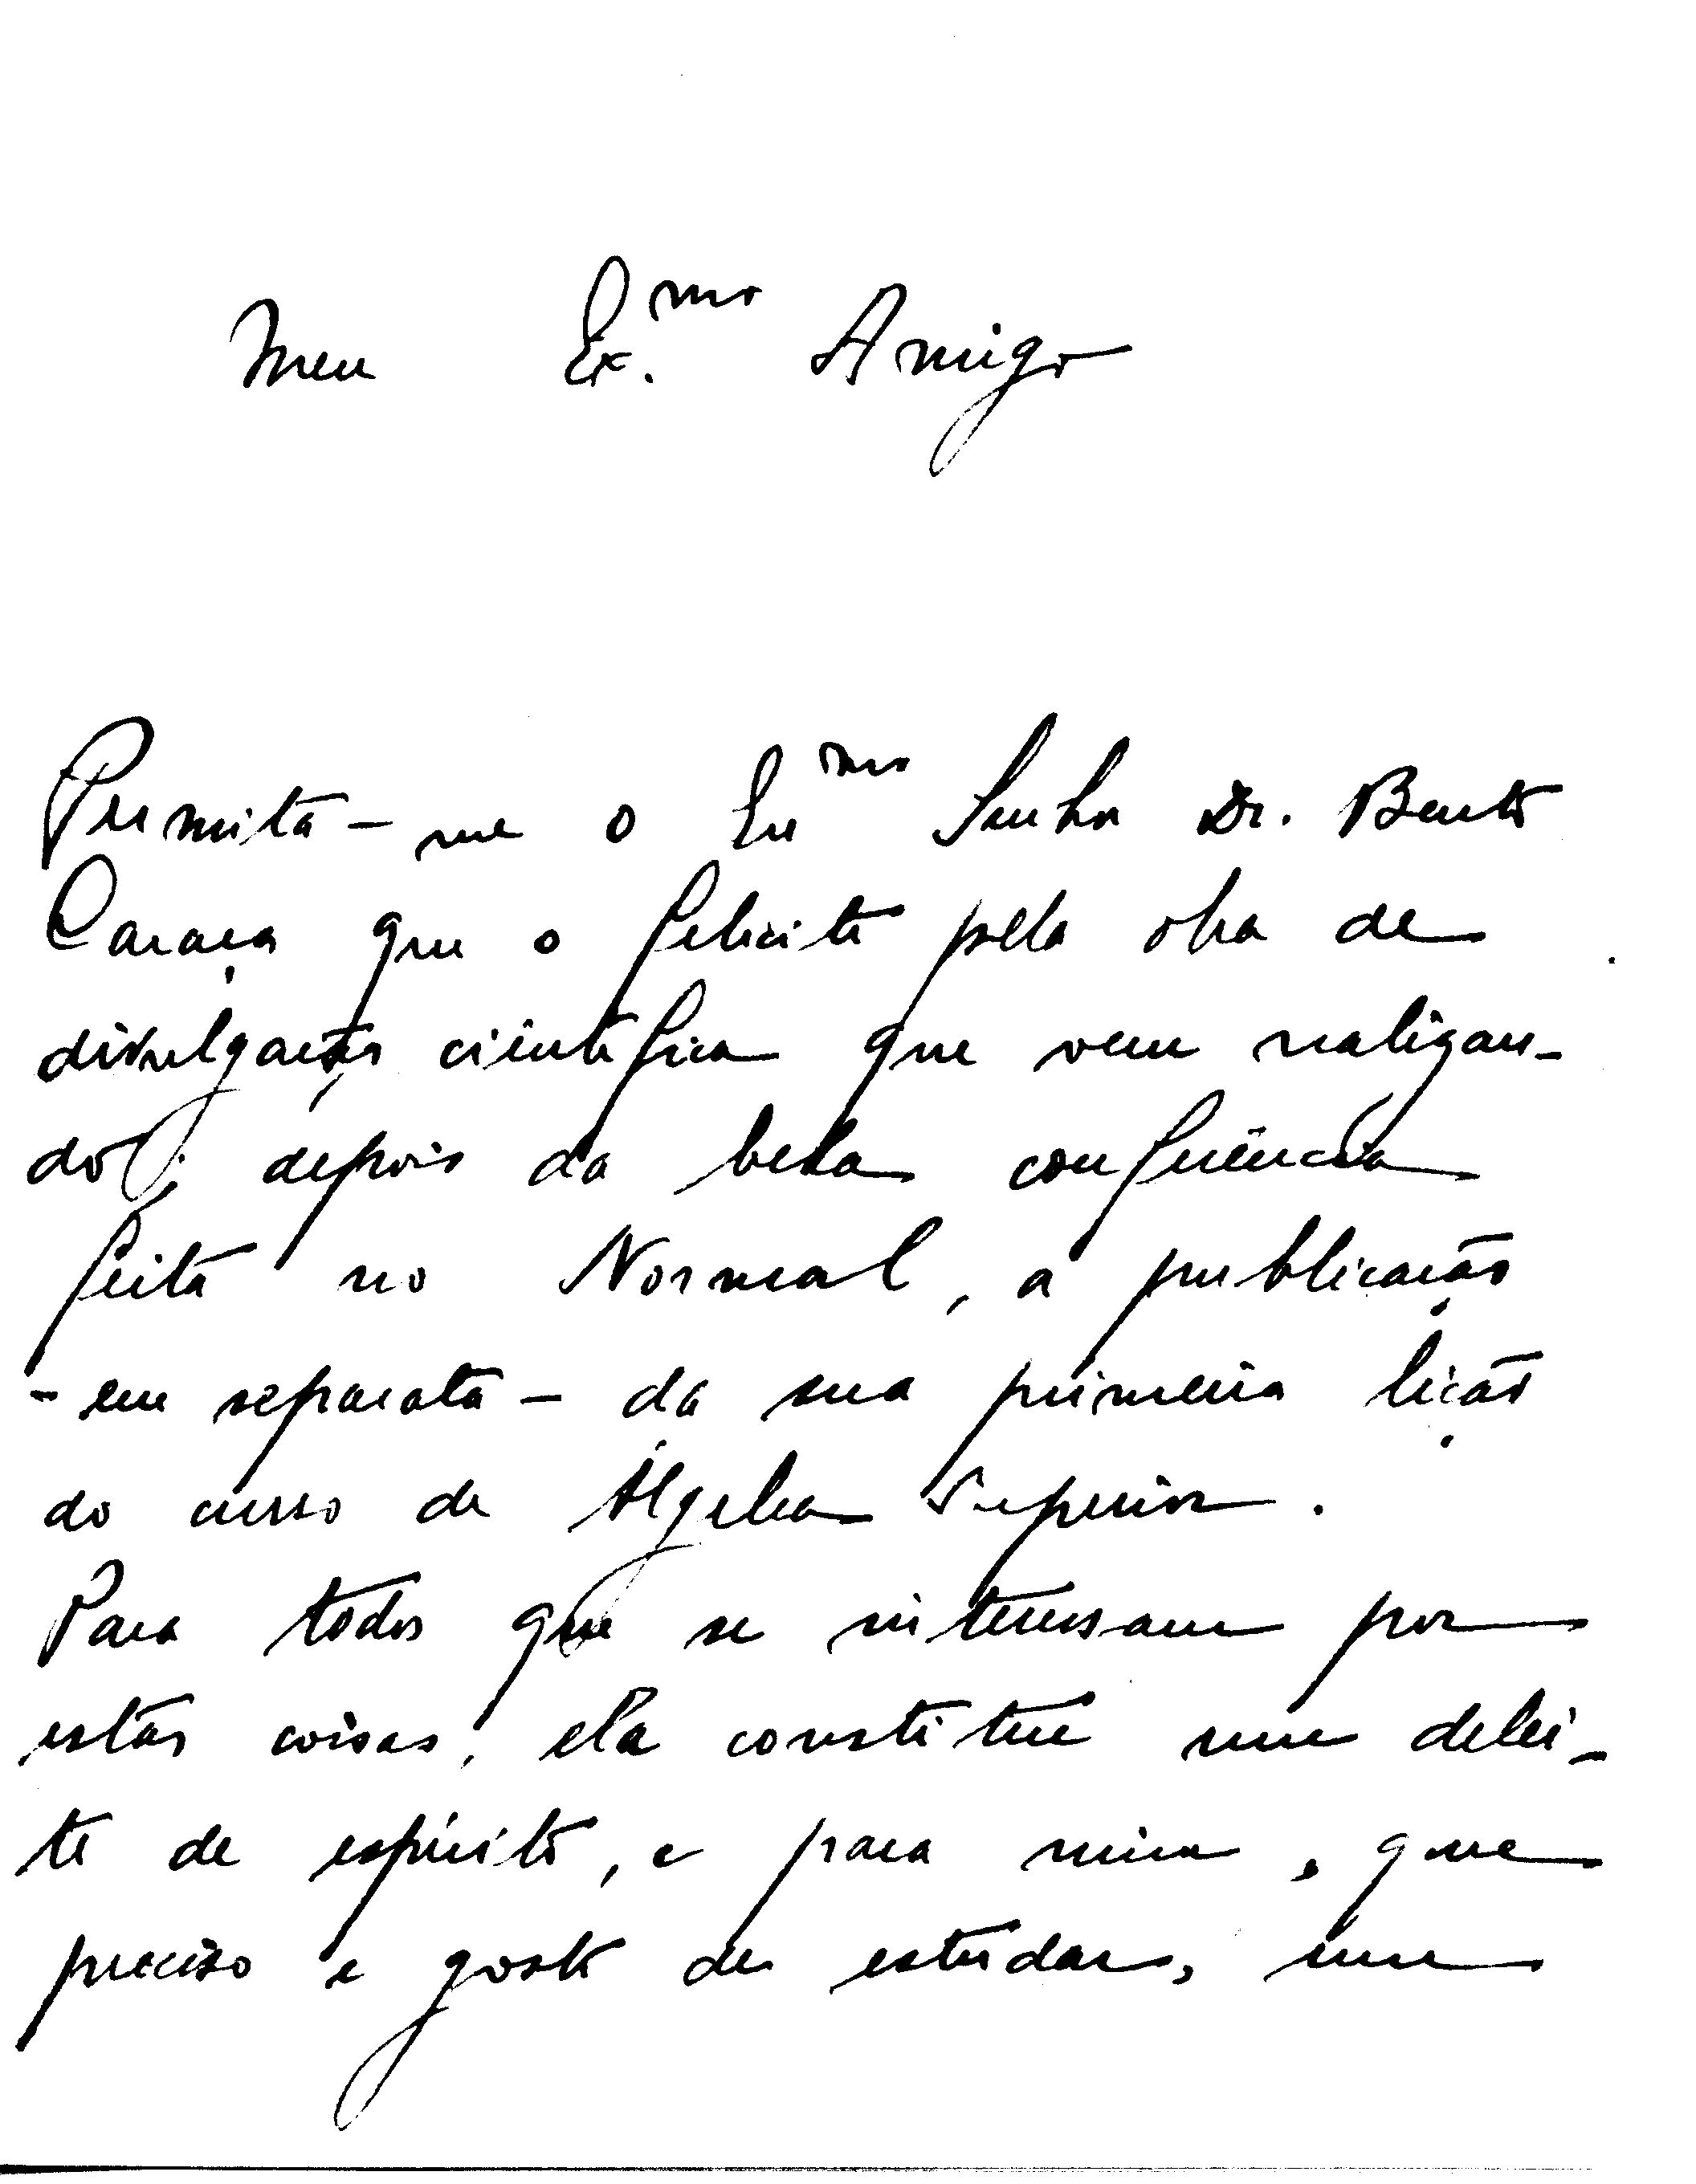 Meu Ex.mo Amigo
Permita-me o Exmo Senhor Dr. Bento
Caraça que o felicite pela obra de
divulgação científica que vem realizan-
do; depois da bela conferência
feita no Normal, a publicação
- em separata - da sua primeira lição
do curso de Álgebra Superior.
Para todos que se interessam por
estas coisas, ela constitue um delei-
te de espírito, e para mim, que
preciso e gosto de estudar, um